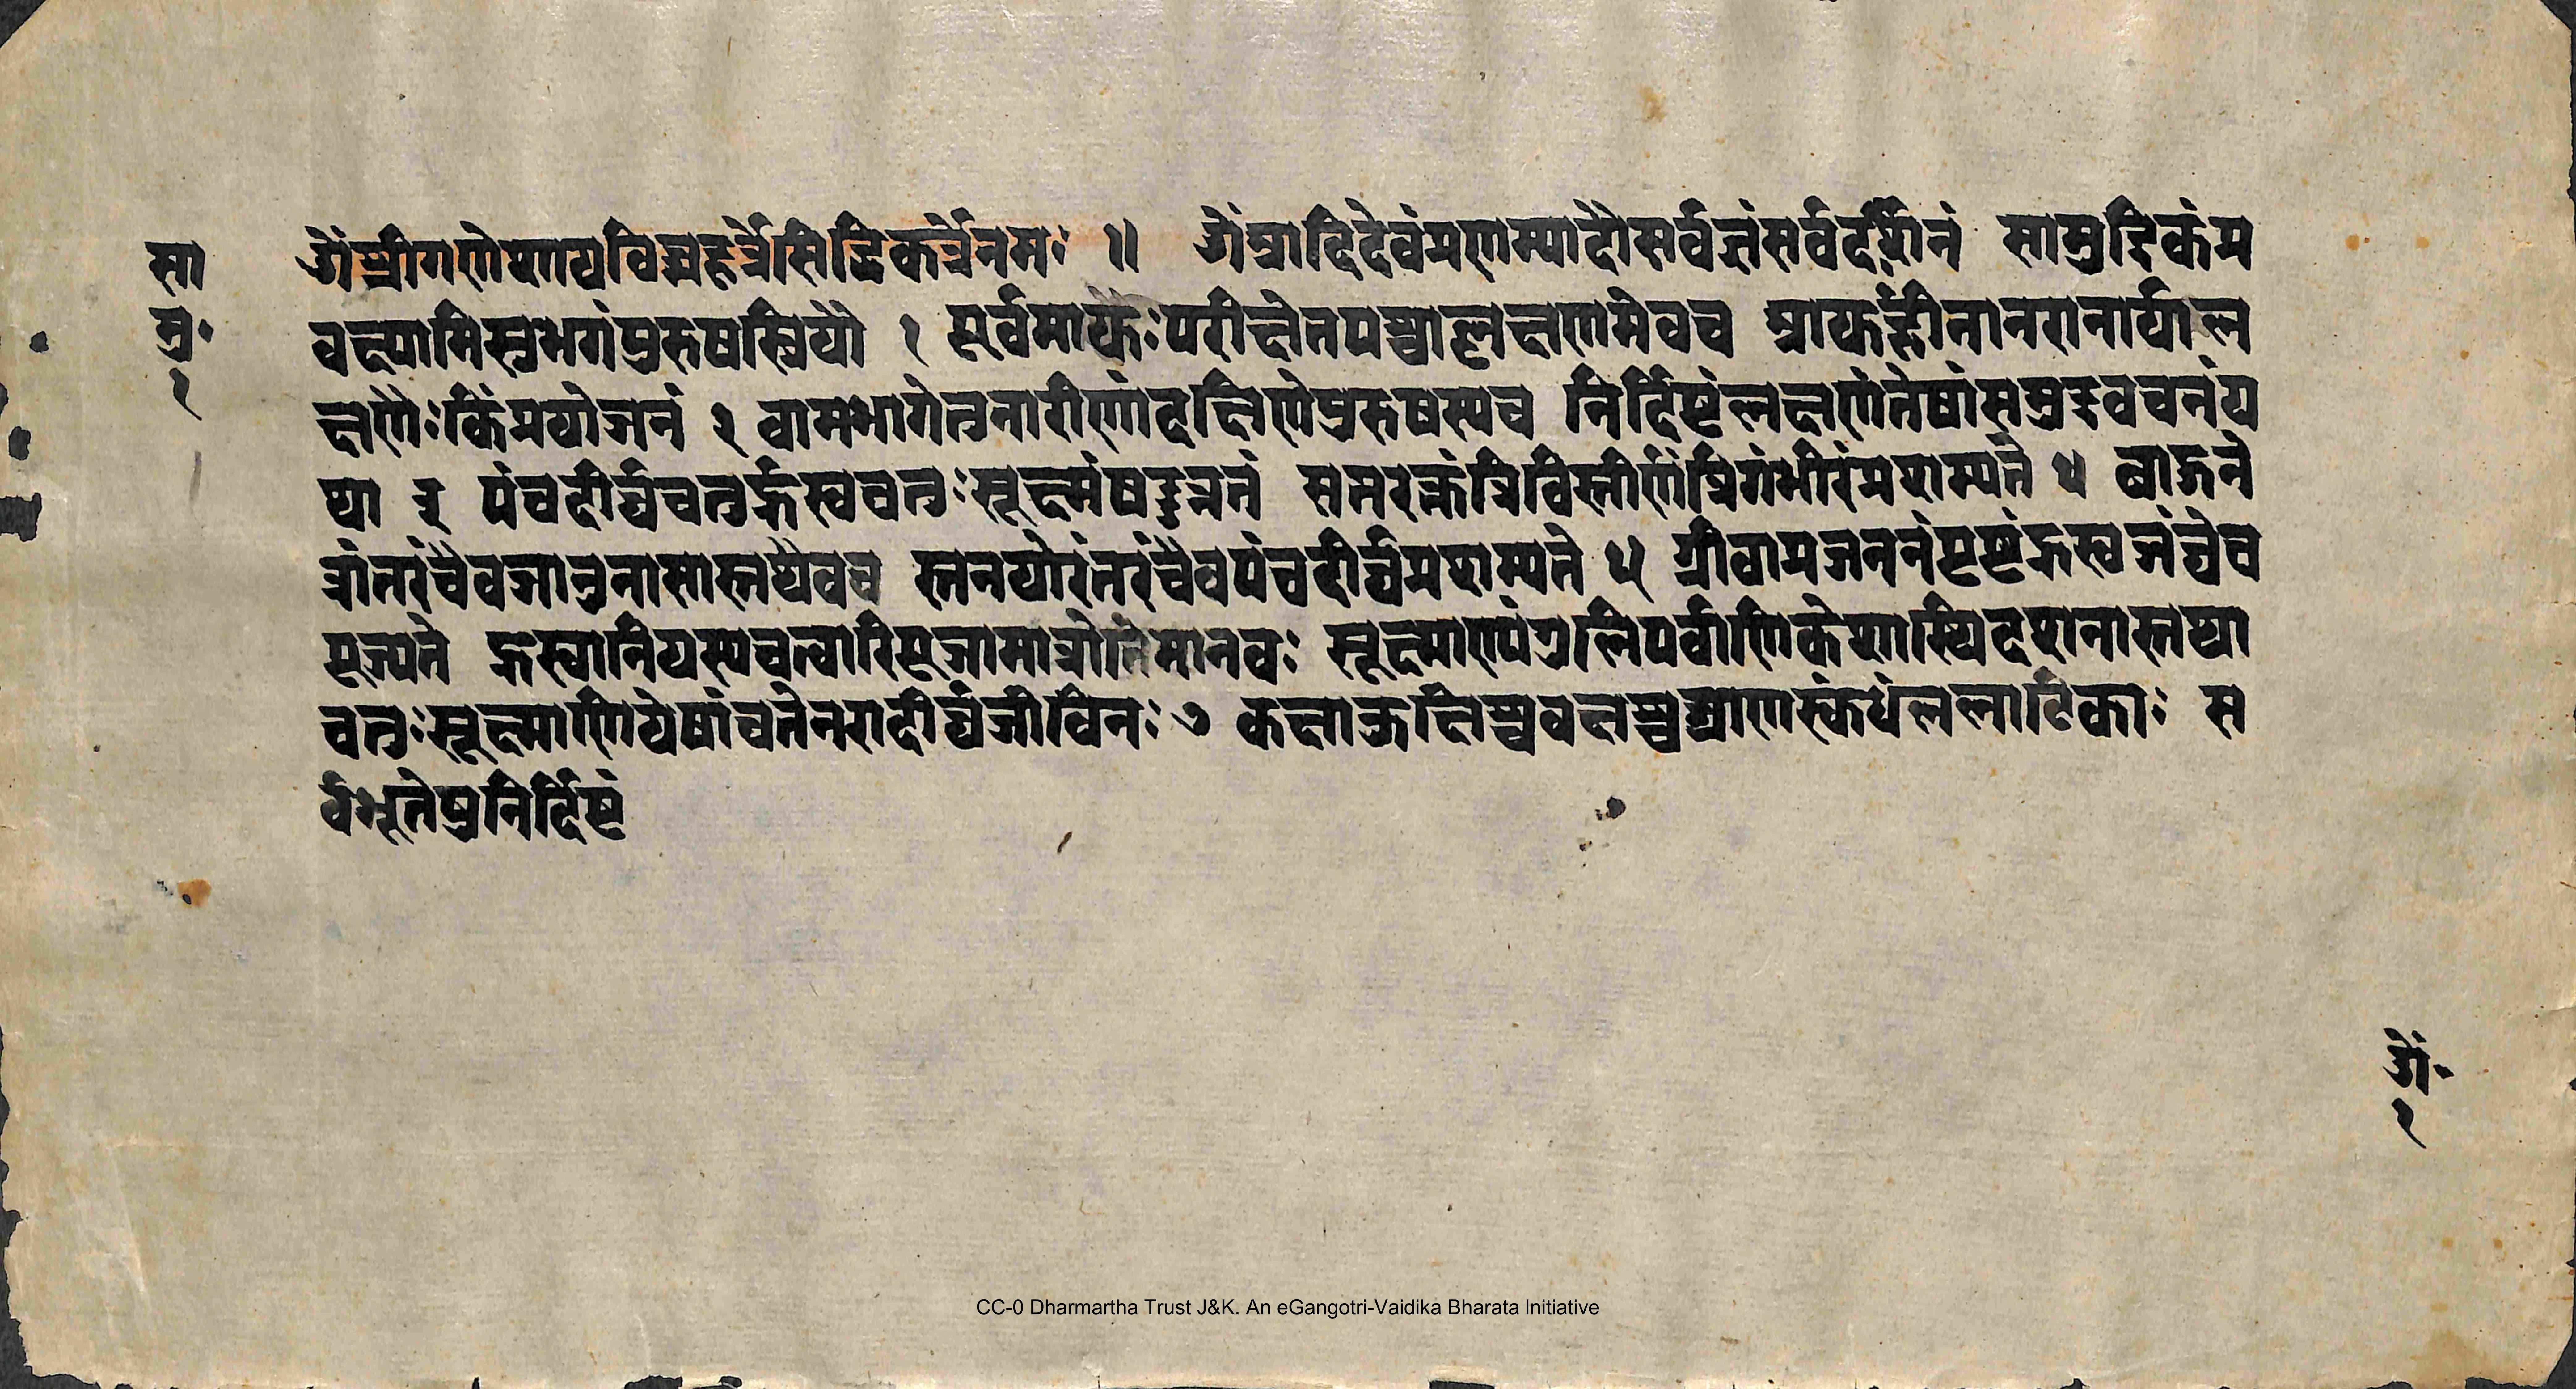 सा
मु·
१
ॐश्रीगणेशायविघ्नहर्त्रेसिद्धिकर्त्रेनमः ॥ ॐआदिदेवंप्रणम्यादौसर्वज्ञंसर्वदर्शिनं सामुद्रिकंप्र
वक्ष्यामिसुभगंपुरुषस्त्रियौ १ पूर्वमायुः परीक्षेतपश्चाल्लक्षणमेवच आयुर्हीनानरानार्याल
क्षणैः किंप्रयोजनं २ वामभागेतुनारीणांदक्षिणेपुरुषस्यच निर्दिष्टंलक्षणंतेषांसमुद्रवचनंय
था ३ पंचदीर्घचतुर्ह्रस्वचतुःसूक्ष्मंषडुन्नतं सप्तरक्तंत्रिविस्तीर्णंत्रिगंभीरंप्रशस्यते ४ बाहुने
त्रांतरंचैवजानुनासास्तथैवच स्तनयोरंतरंचैवपंचदीर्घप्रशस्यते ५ ग्रीवाप्रजननंपृष्टंह्रस्वजंघेच
पूज्यते ह्रस्वानियस्यचत्वारिपूजामाप्नोतिमानवः सूक्ष्माण्यंगुलिपर्वाणिकेशास्थिदशनास्तथा
चतुःसूक्ष्माणियेषांचतेनरादीर्घजीविनः ७ कक्षाकुक्षिश्चवक्षश्चघ्राणस्कंधंललाटिकाः स
र्वभूतेषुनिर्दिष्टं
ॐ·
१
CC-0 Dharmartha Trust J&K. An eGangotri-Vaidika Bharata Initiative